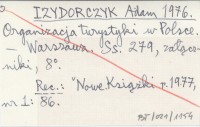 IZYDORCZYK Adam 1976.
Organizacja turystyki w Polsce.
— Warszawa. Ss. 279, załącz-
niki, 8°.
Rec.: "Nowe Książki" r. 1977,
nr 1: 86.
BT/021/1154